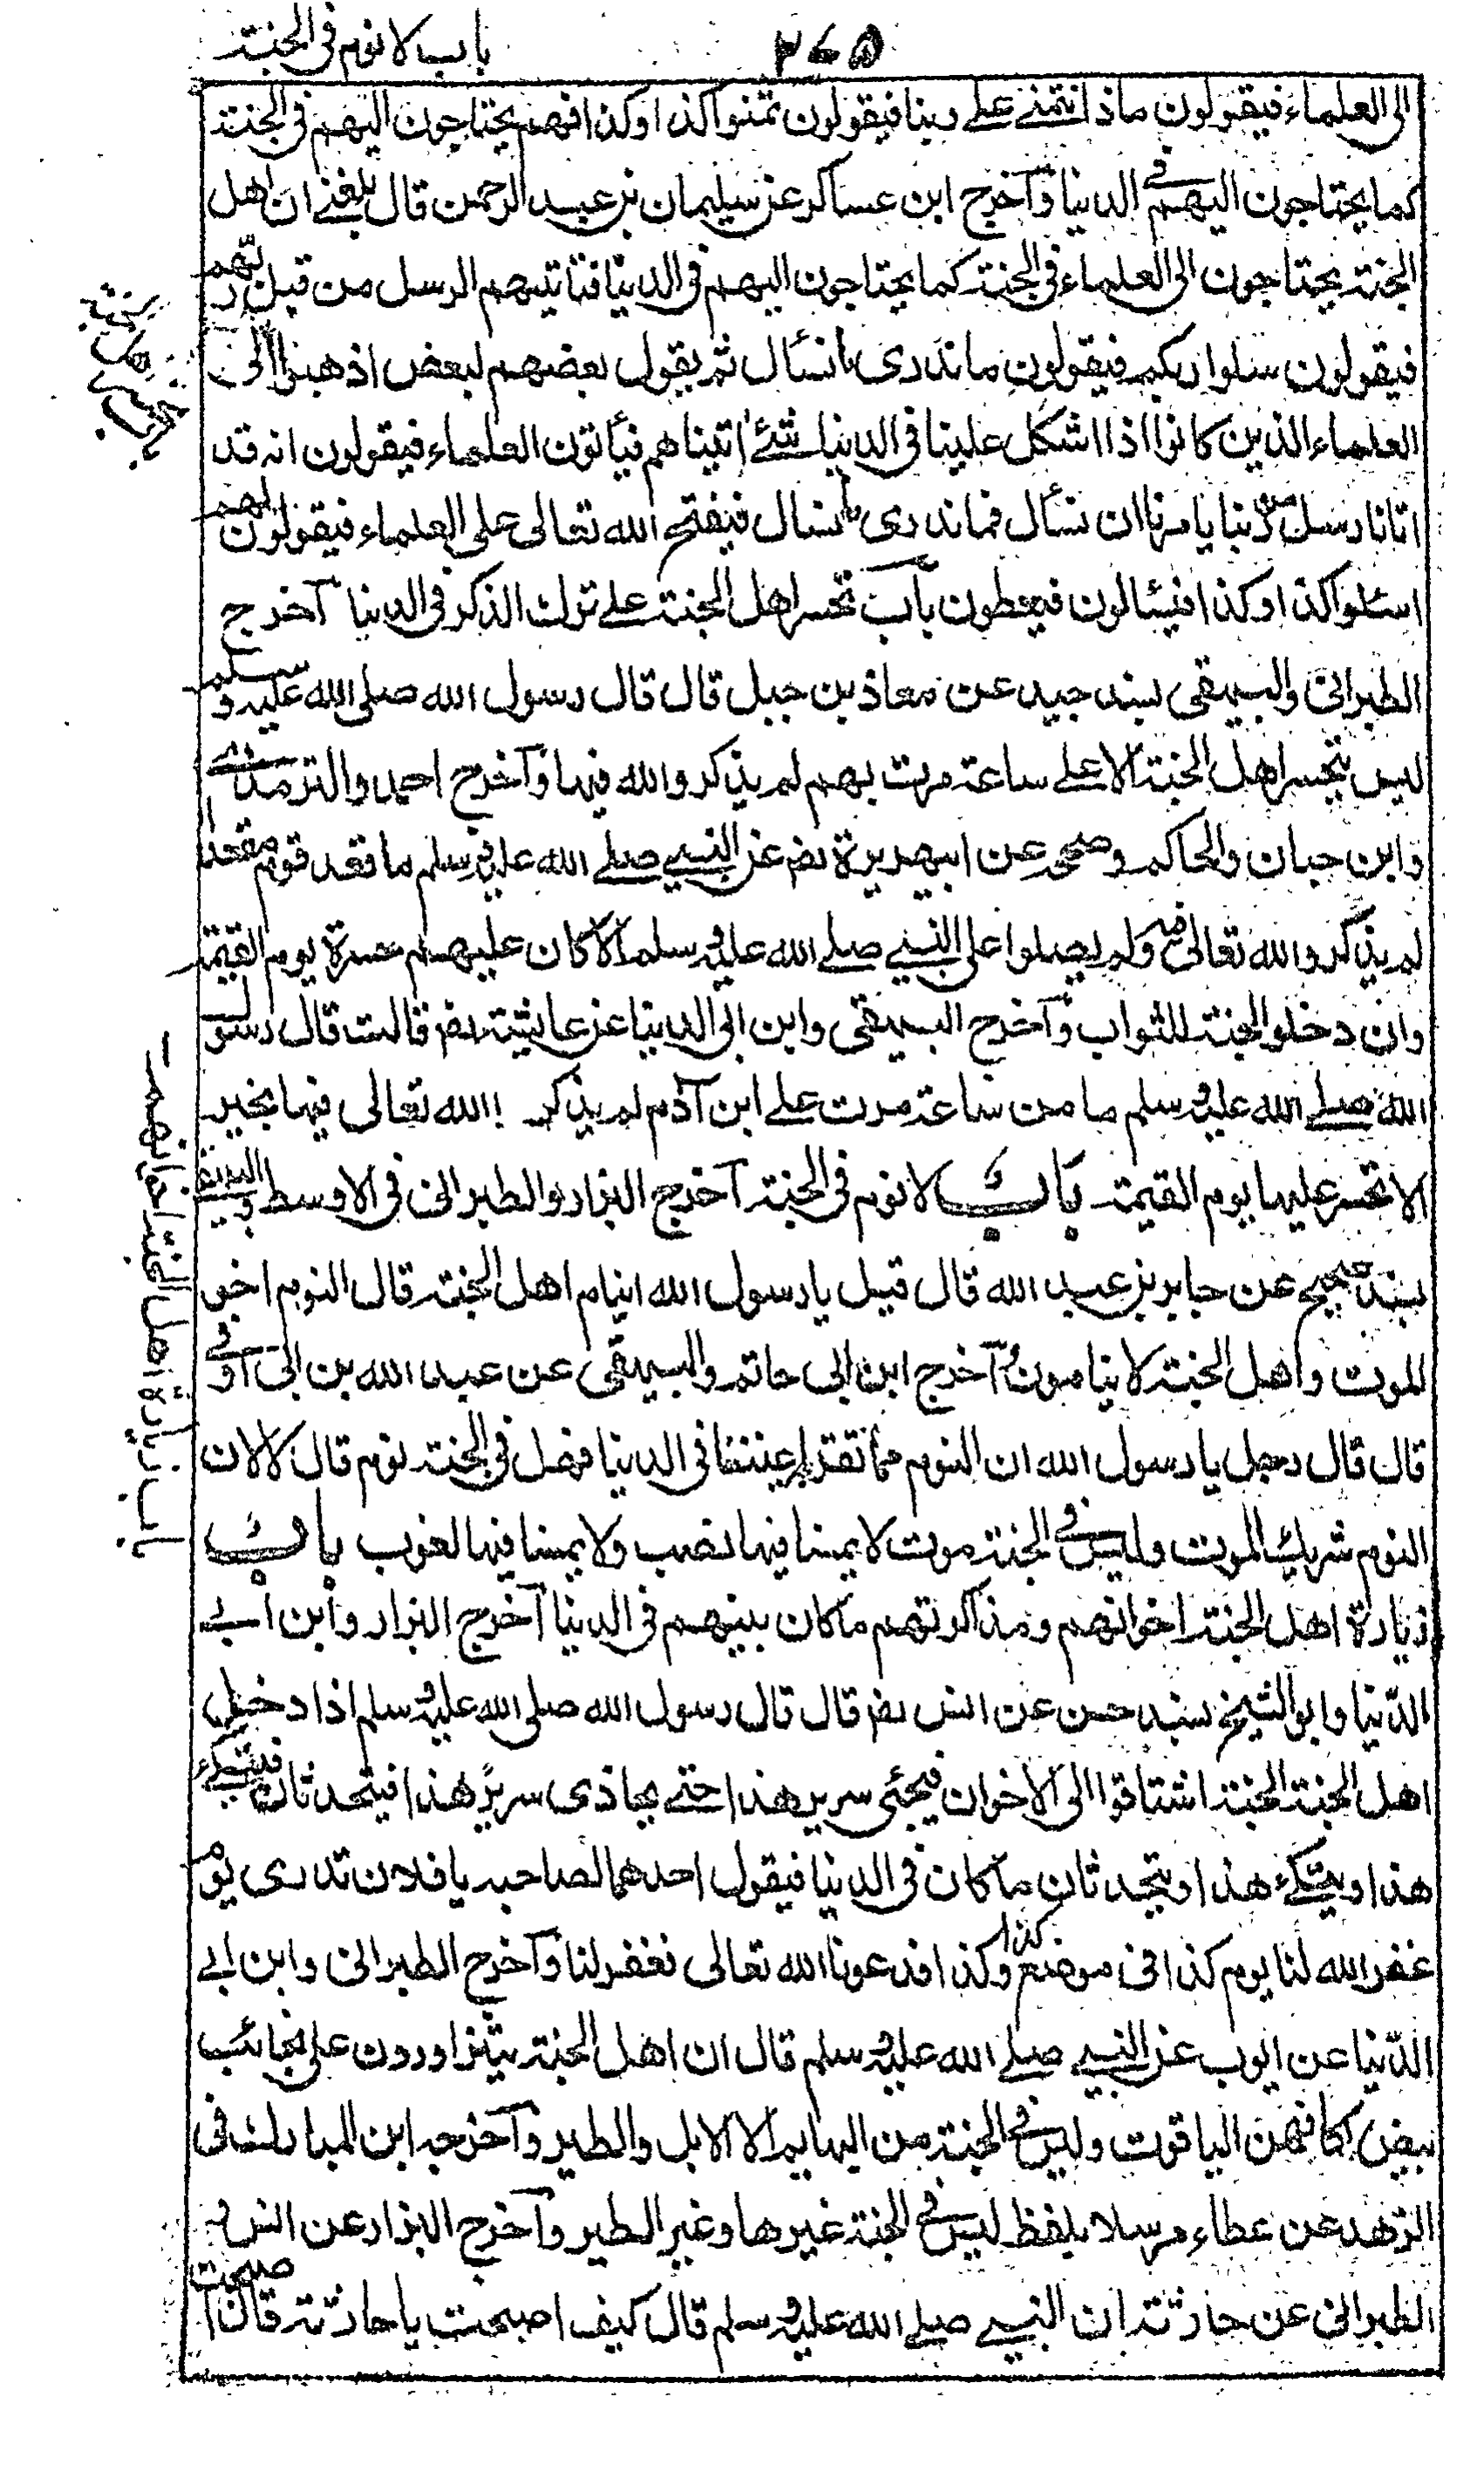 باب لا نوم فى الجنة
٢٧٥
الى العلماء فيقولون ماذا نتمنے علے ربنا فيقولون تمنوا كذا وكذا فهم يحتاجون اليهم فى الجنة
كما يحتاجون اليهم فى الدنيا وآخرج ابن عساكر عن سليمان بن عبد الرحمن قال بلغنے ان اهل
الجنة يحتاجون الى العلماء فى الجنة كما يحتاجون اليهم فى الدنيا فتاتيهم الرسل من قبل ربهم
فيقولون سلوا ربكم فيقولون ماندرى ما نسأل ثم يقول بعضهم لبعض اذهبوا الى
العلماء الذين كانوا اذا اشكل علينا فى الدنيا شئے اتيناهم فيأتون العلماء فيقولون انه قد
اتانا رسل من ربنا يامرنا ان نسأل فماندرى ما نسال فيفتح الله تعالى على العلماء فيقولون لهم
اسئلوا كذا وكذا فيسالون فيعطون باب تحسر اهل الجنة علے ترك الذكر فى الدنيا آخرج
الطبرانى والبيهقى بسند جيد عن معاذ بن جبل قال قال رسول الله صلى الله عليه وسلم
ليس يتحسر اهل الجنة الا علے ساعة مرت بهم لم يذكروا الله فيها وآخرج احمد والترمذے
وابن حبان والحاكم وصححه عن ابيهريرة رضـ عن النبے صلے الله عليه وسلم ما قعد قوم مقعدا
لم يذكروا الله تعالى فيه ولم يصلوا على النبے صلے الله عليه وسلم الا كان عليهم حسرة يوم القيمة
وان دخلوا الجنة للثواب وآخرج البيهقى وابن ابى الدنيا عن عايشة رضـ قالت قال رسول
الله صلے الله عليه وسلم ما من ساعة مرت علے ابن آدم لم يذكر الله تعالى فيها بخير
الا تحسر عليها يوم القيمة باب لا نوم فى الجنة آخرج البزار والطبرانى فى الاوسط والبيهقى
بسند صحيح عن جابر بن عبد الله قال قيل يا رسول الله اينام اهل الجنة قال النوم اخو
الموت واهل الجنة لا ينامون وآخرج ابن ابى حاتم والبيهقى عن عبد الله بن ابى اوفے
قال قال رجل يا رسول الله ان النوم مما تقر به اعيننا فى الدنيا فهل فى الجنة نوم قال لا لان
النوم شريك الموت وليس فى الجنة موت لا يمسنا فيها نصب ولا يمسنا فيها لغوب باب
زيارة اهل الجنة اخوانهم ومذاكرتهم ما كان بينهم فى الدنيا آخرج البزار وابن ابے
الدنيا وابو الشيخ بسند حسن عن انس رضـ قال قال رسول الله صلى الله عليه وسلم اذا دخل
اهل الجنة الجنة اشتاقوا الى الاخوان فيجئى سرير هذا حتے يحاذى سرير هذا فيتحدثان فيتكے
هذا ويتكے هذا ويتحدثان ما كان فى الدنيا فيقول احدهما لصاحبه يا فلان تدرى يوم
غفر الله لنا يوم كذا فى موضع كذا وكذا فدعونا الله تعالى فغفر لنا وآخرج الطبرانى وابن ابے
الدنيا عن ايوب عن النبے صلے الله عليه وسلم قال ان اهل الجنة يتزاورون على نجائب
بيض كانهن الياقوت وليس فى الجنة من البهايم الا الابل والطير وآخرجه ابن المبارك فى
الزهد عن عطاء مرسلا بلفظ ليس فى الجنة غيرها وغير الطير وآخرج البزار عن انس و
الطبرانى عن حارثة ان النبے صلے الله عليه وسلم قال كيف اصبحت يا حارثة قال اصبحت
باب زيارة اهل الجنة اخوانهم